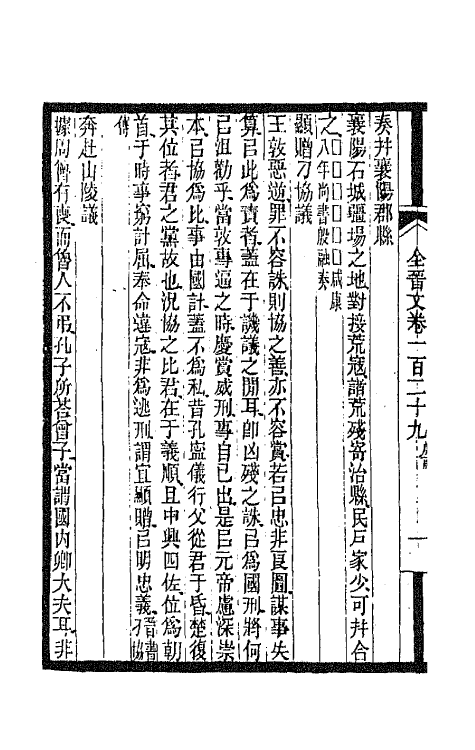 全晉文卷一百二十九
奏并襄陽郡縣
襄陽石城疆場之地對接荒寇諸荒殘寄治縣民戶家少可并合
之□□□□□□□咸康八年尚書殷融奏
顯贈刁協議
王敦惡逆罪不容誅則協之善亦不容賞若㠯忠非良圖謀事失
算㠯此爲責者蓋在于譏議之閒耳卽凶殘之誅㠯爲國刑將何
㠯沮勸乎當敦專逼之時慶賞威刑專自己出是㠯元帝慮深崇
本㠯協爲比事由國計蓋不爲私昔孔寧儀行父從君于昏楚復
其位者君之黨故也況協之比君在于義順且中興四佐位爲朝
首于時事窮計屈奉命違寇非爲逃刑謂宜顯贈㠯明忠義晉書刁協
傳
奔赴山陵議
據周曾有喪而魯人不弔孔子所荅曾子當謂國內卿大夫耳非